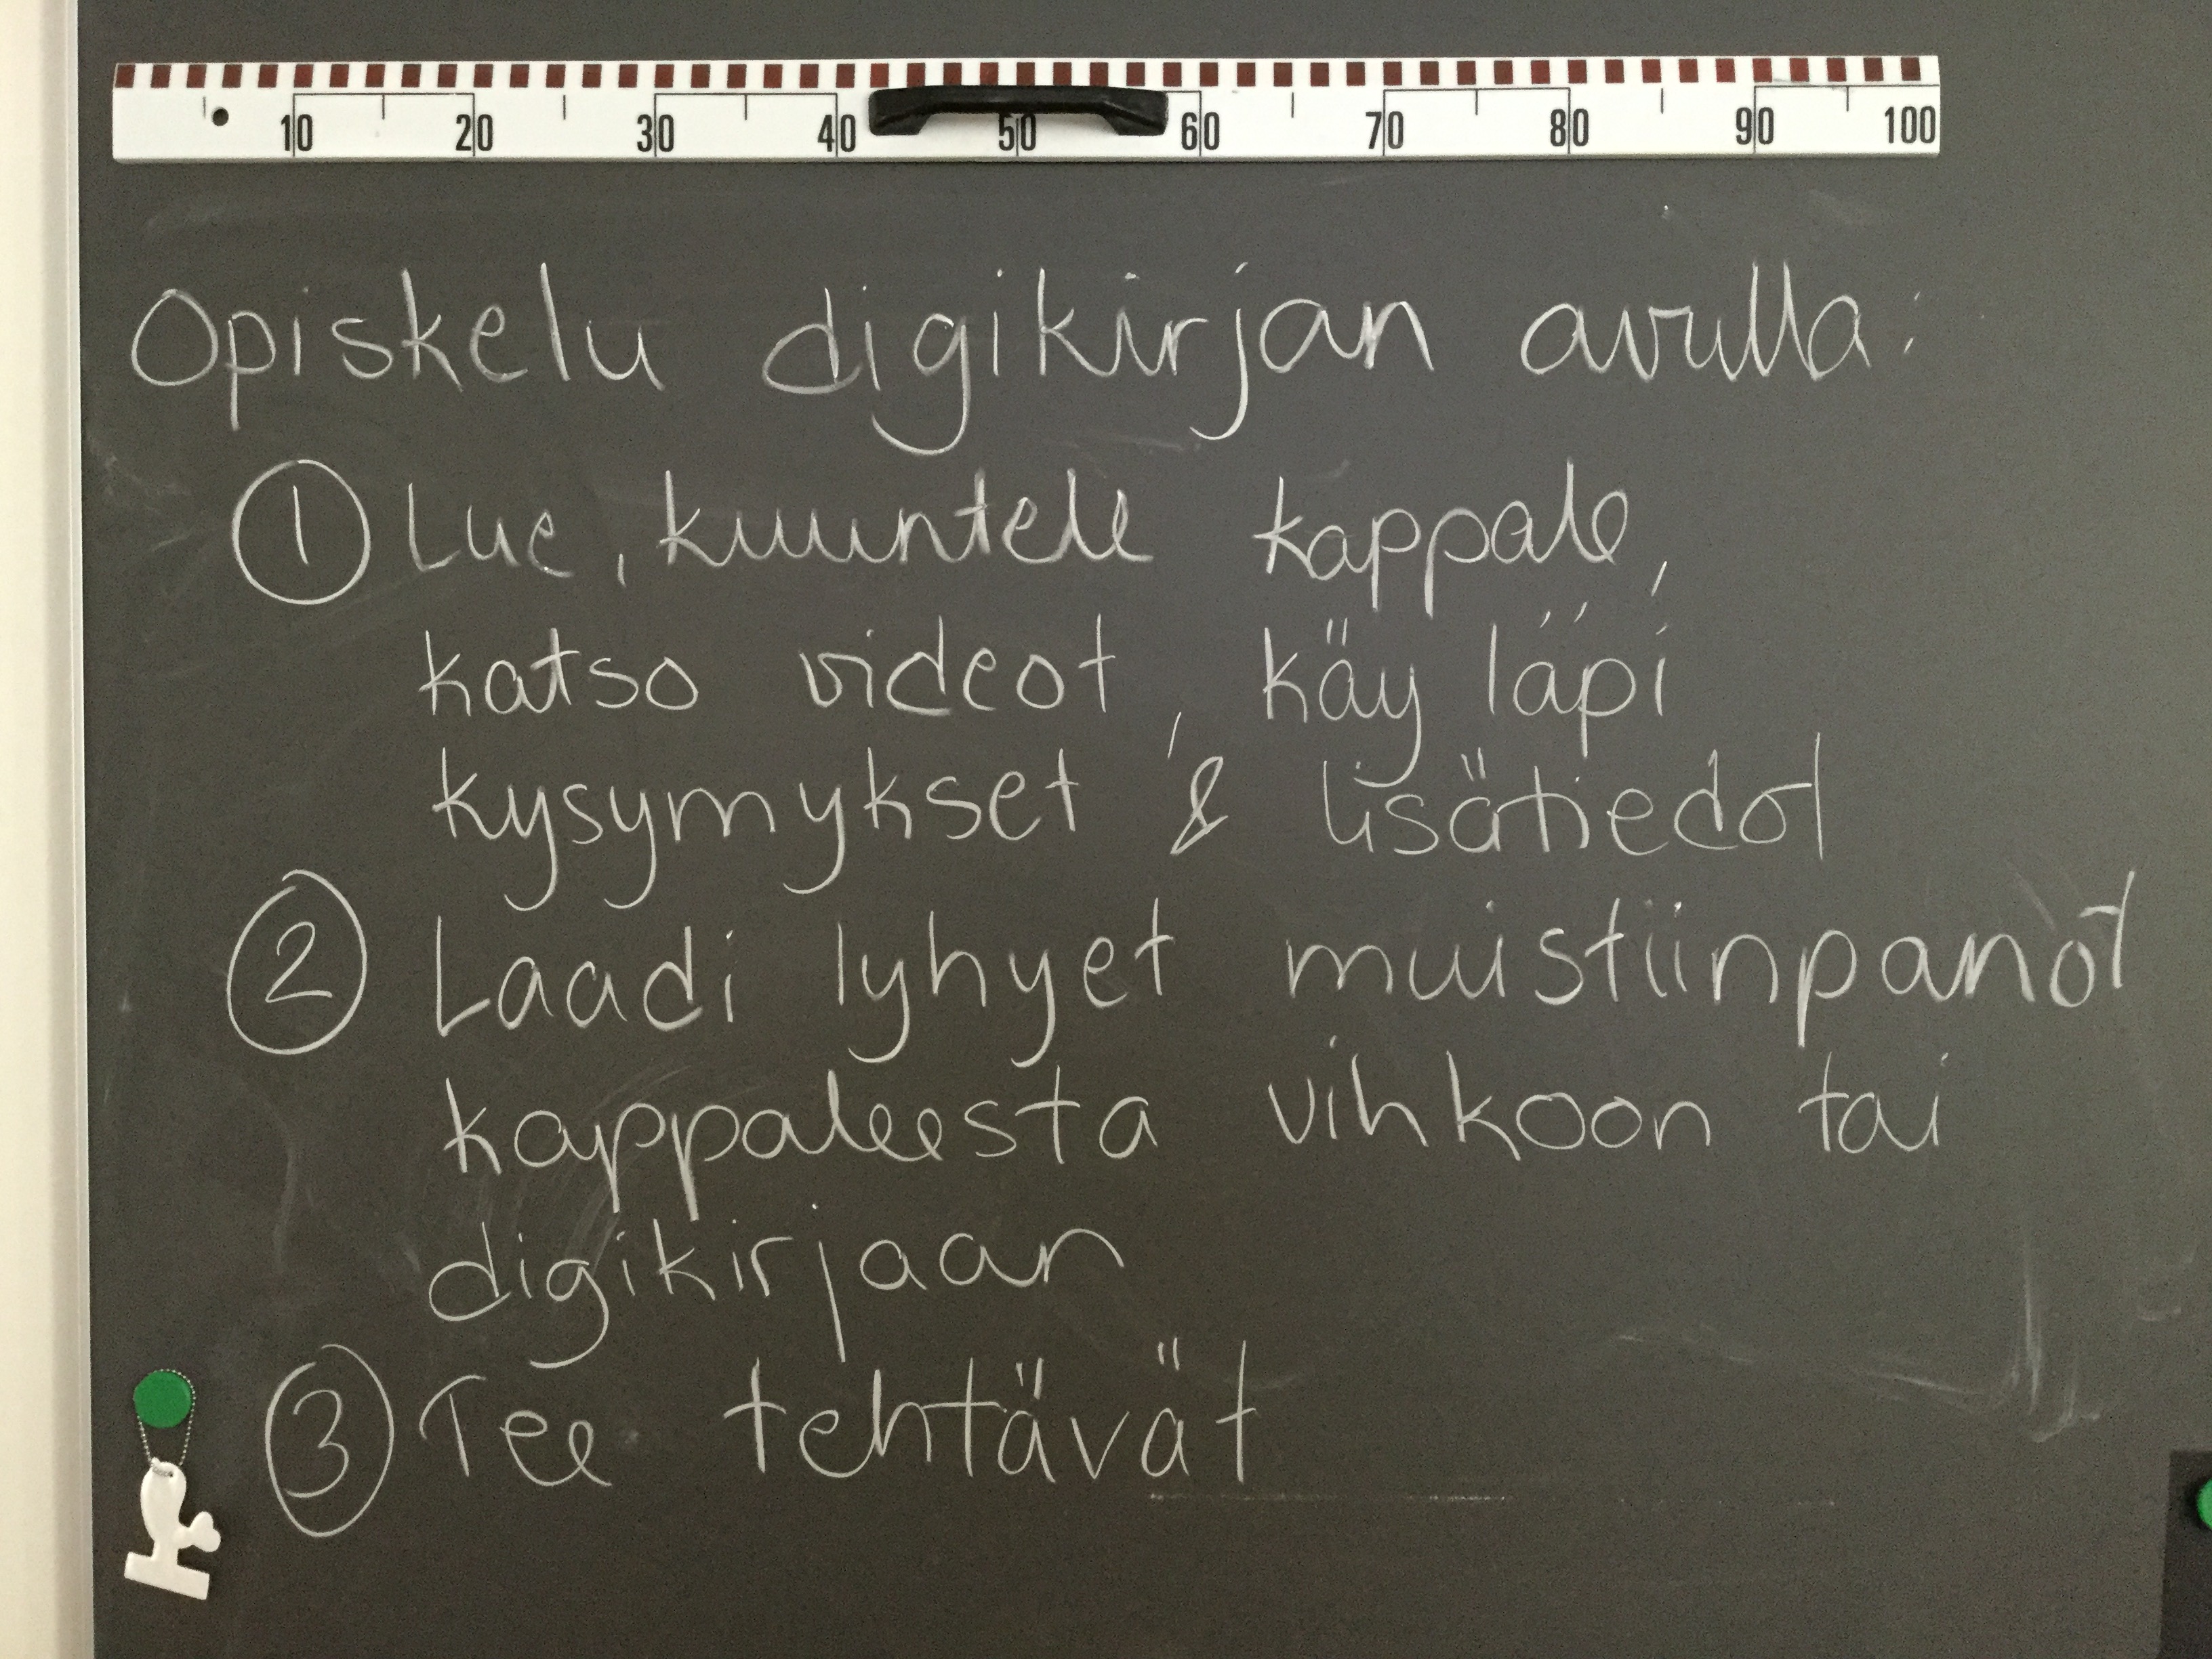 10 20 30 40 50 60 70 80 90 100
Opiskelu digikirjan avulla:
1 Lue, kuuntele kappale,
katso videot, käy läpi
kysymykset & lisätiedot
2 Laadi lyhyet muistiinpanot
kappaleesta vihkoon tai
digikirjaan
3 Tee tehtävät